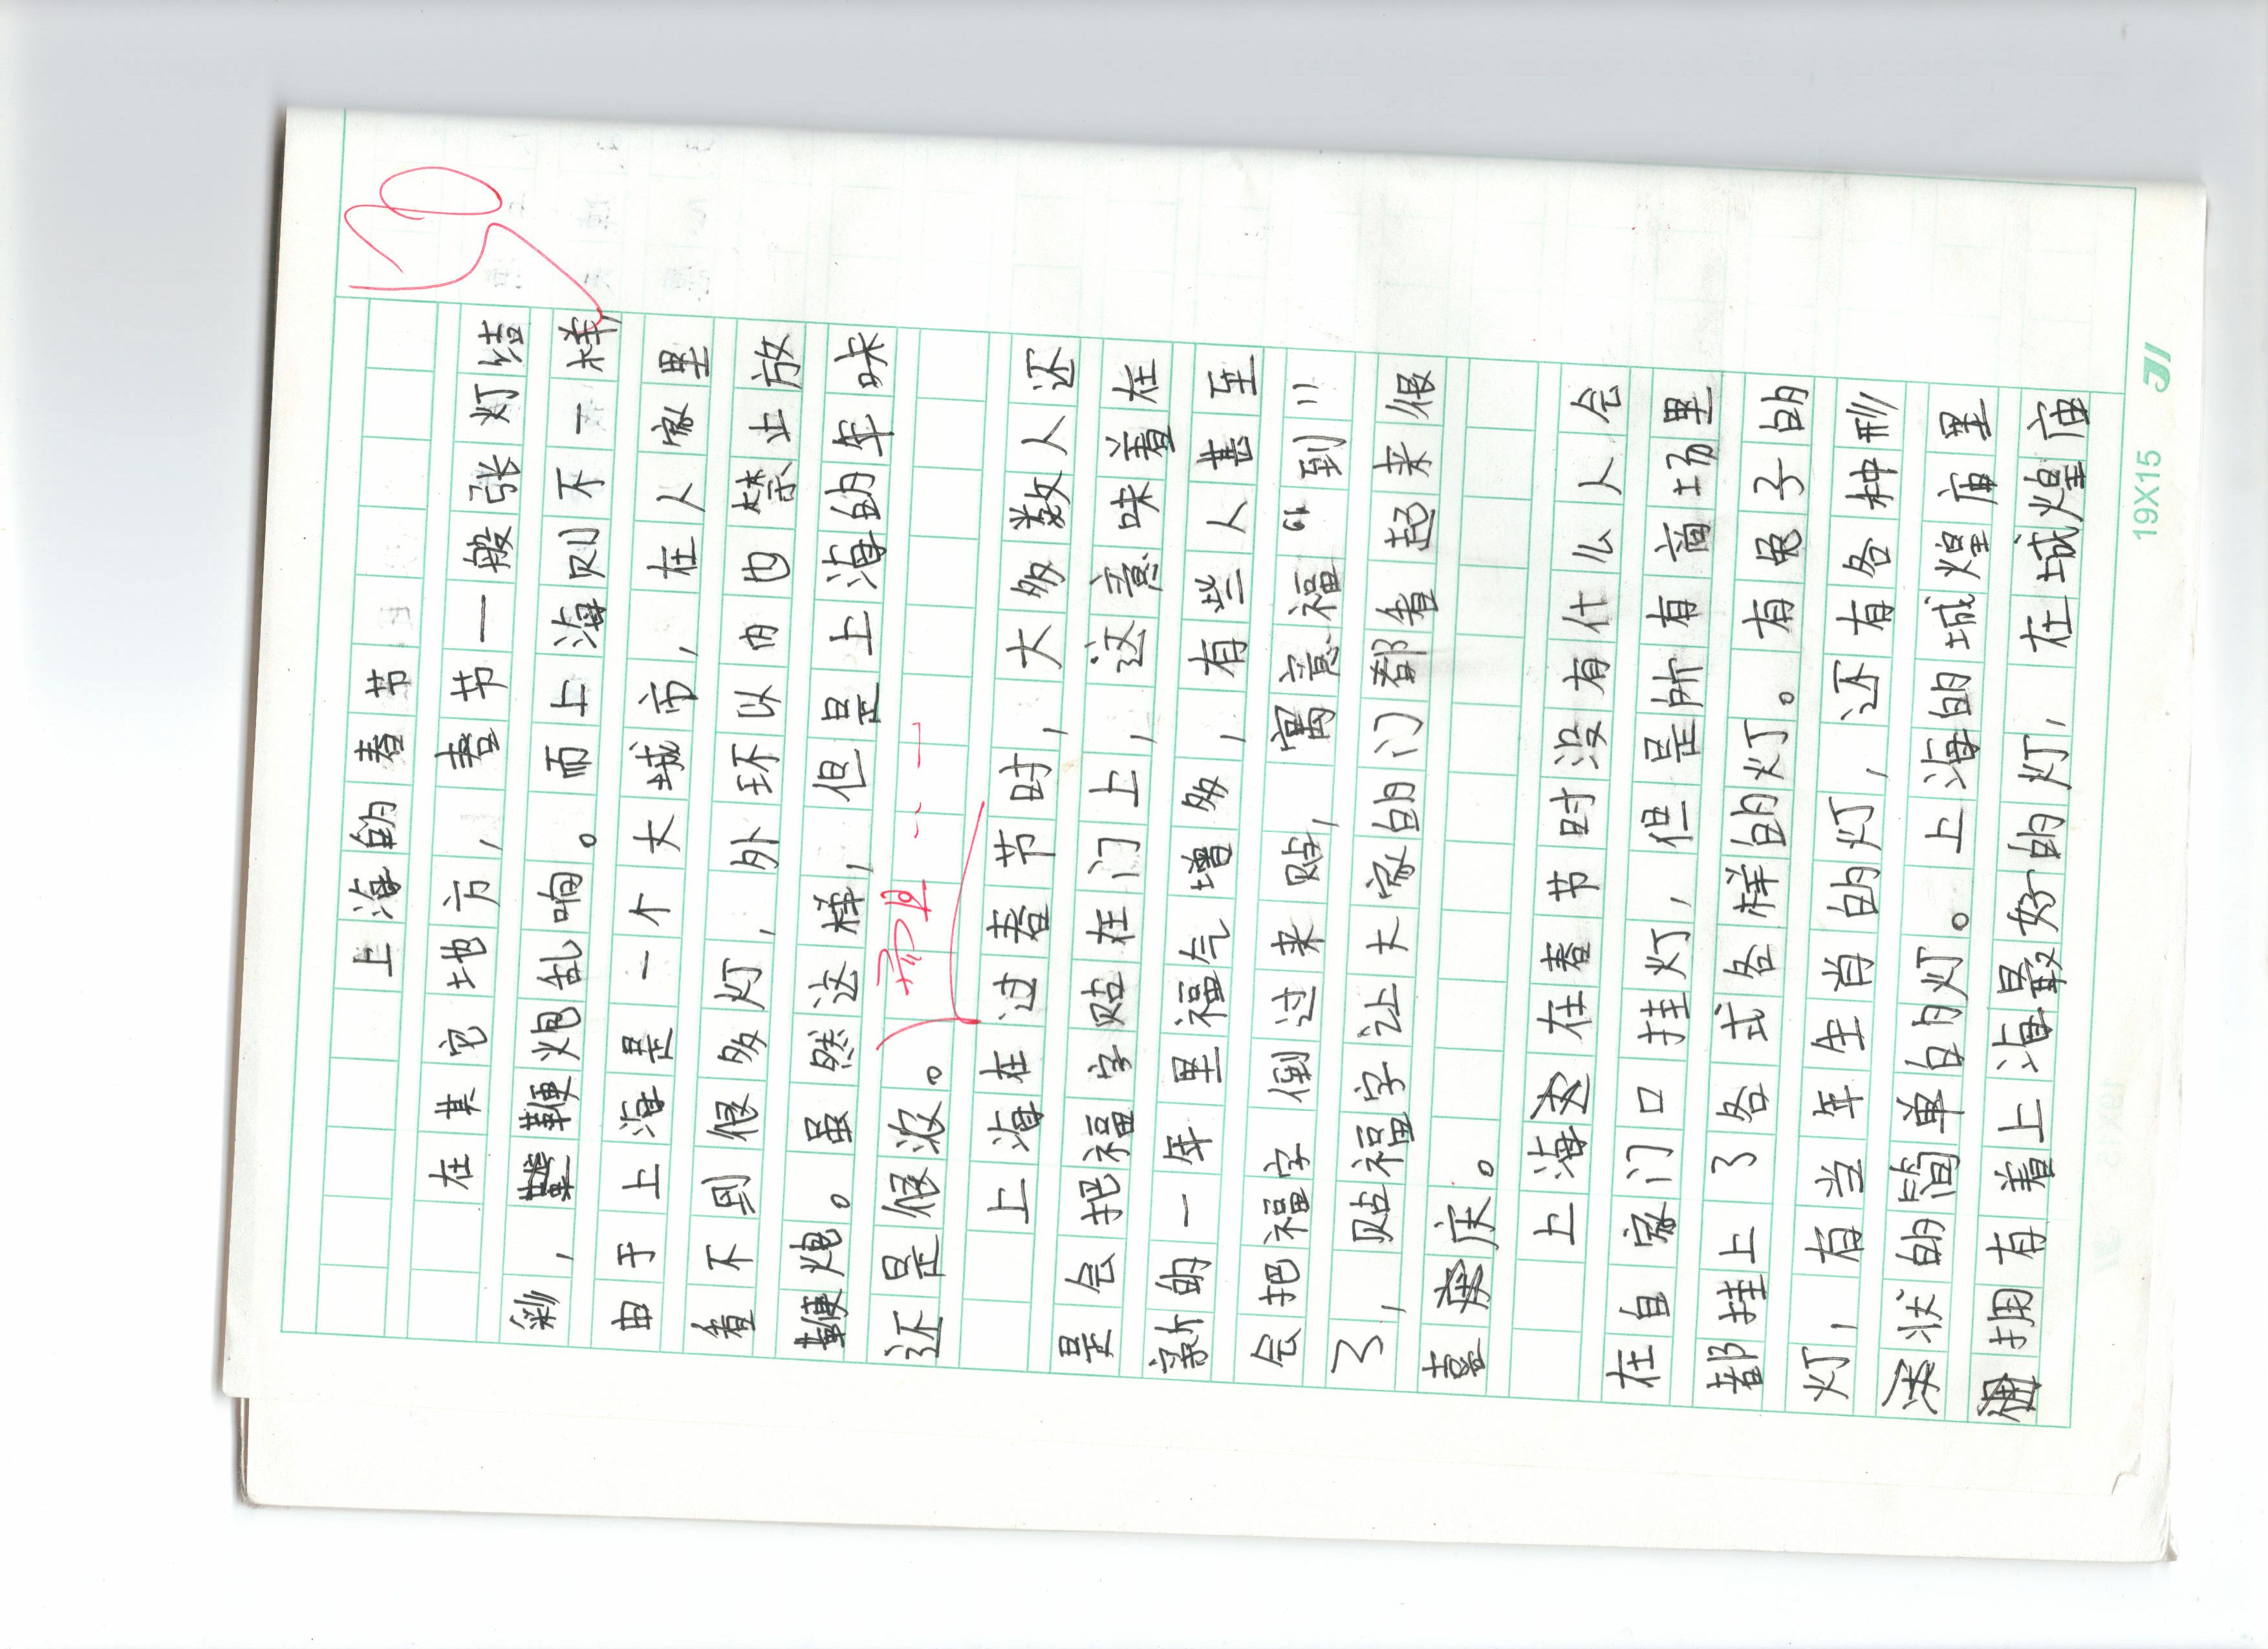 上海的春节
在其它地方，春节一般张灯结
彩，鞭炮乱响。而上海则不一样，
由于上海是一个大城市，在人家里
看不到很多灯，外环以内也禁止放
鞭炮。虽然这样，但是上海的年味
还是很浓。
上海在过春节时，大多数人还
是会把福字贴在门上，这意味着在
新的一年里福气增多，有些人甚至
会把福字倒过来贴，寓意福“到”
了，贴福字让大家的门都看起来很
喜庆。
上海在春节时没有什么人会
在自家门口挂灯，但是所有商场里
都挂上了各式各样的灯。有兔子的
灯，有当年生肖的灯，还有各种形
状的简单的灯。上海的城煌庙里
拥有着上海最好的灯，在城煌庙
19X15